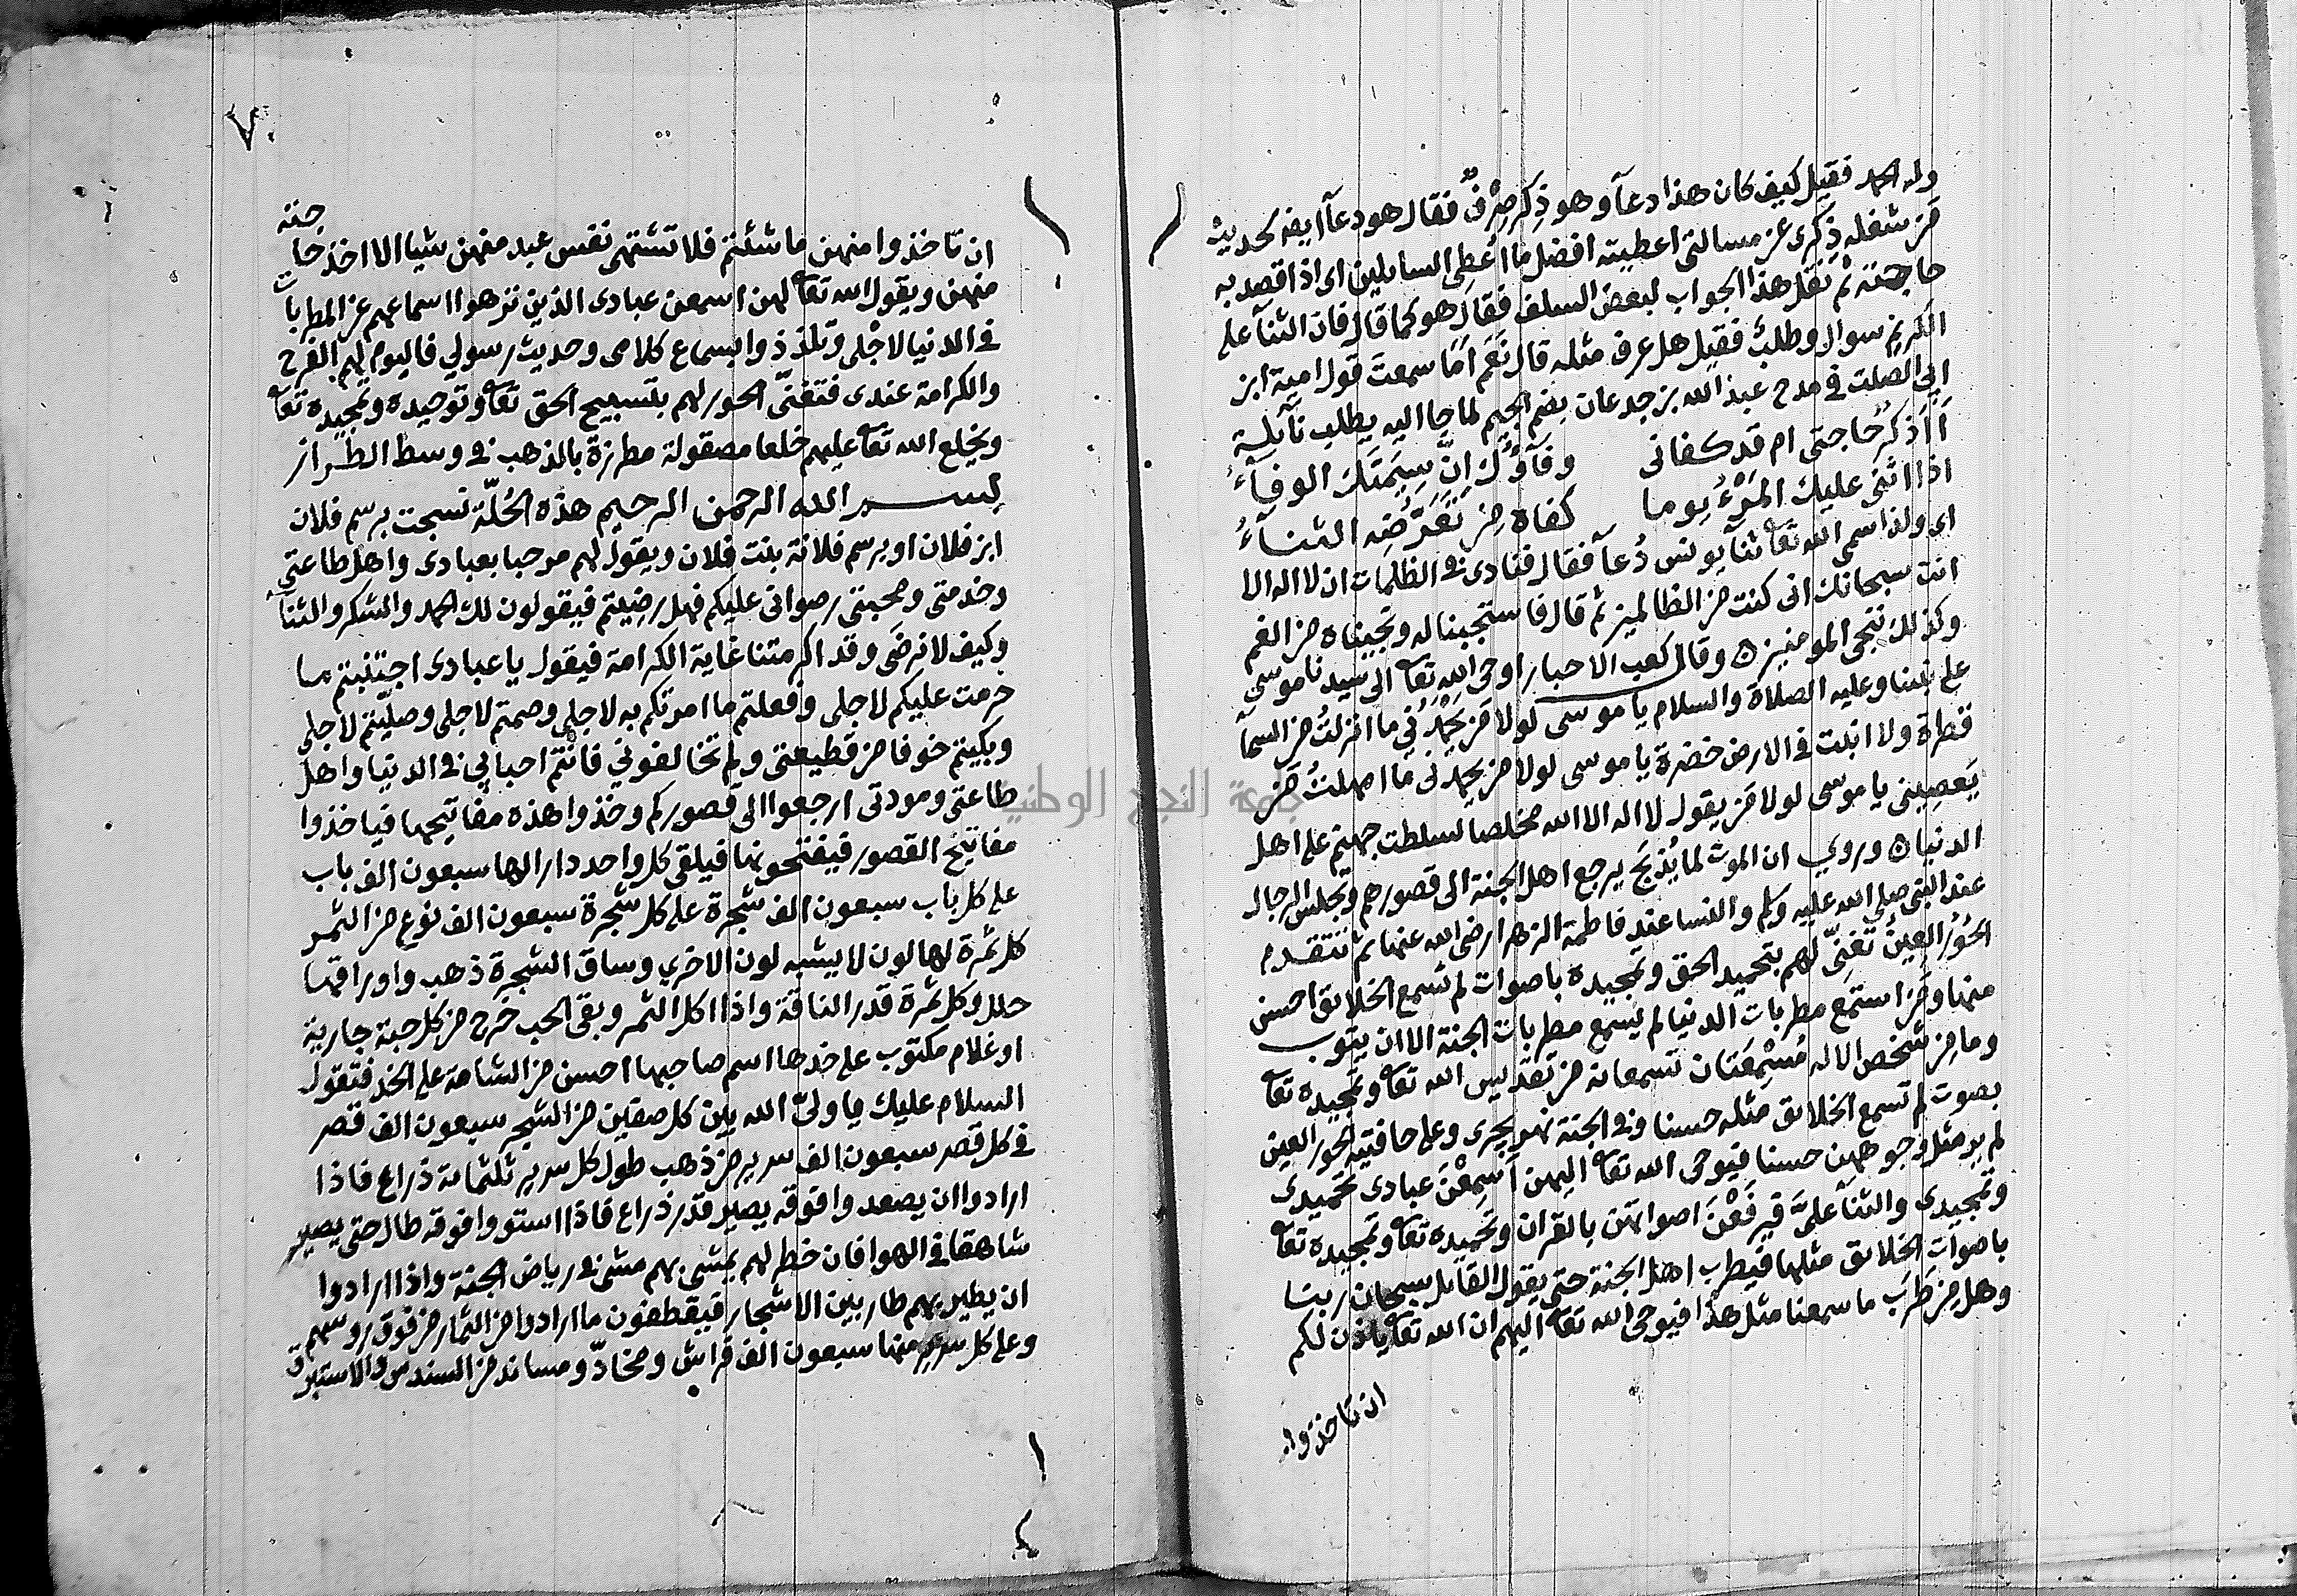 وله الحمد فقيل كيف كان هذا دعآ وهو ذِكر صِرْفٌ فقال هو دعآ ايضه لحديث
مَن شغله ذِكرى عن مسالتى اعطيته افضل ما اُعطى السايلين اى اذا قصد به
حاجته ثم نقل هذا الجواب لبعض السلف فقال هو كما قال فان الثنآ على
الكريم سوال وطلب فقيل هل عرف مثله قال نَعَم اَمَا سمعت قول امية ابن
ابى الصلت فى مدح عبد الله بن جدعان بضم الجيم لما جا اليه يطلب نآيلة
أَاَذكرُ حاجتى ام قد كفانى وفآؤُك اِنَّ سِيمَتَك الوفآءُ
اذا اثنى عليك المَرْءُ يوما كفاه مِن تَعَرُّضِه الثنآءُ
اى ولذا سمى الله تعا ثنآ يونس دُعآ فقال فنادى فى الظلمات ان لا اله الا
انت سبحانك انى كنت من الظالمين ثم قال فاستجبنا له ونجيناه من الغم
وكذلك ننجى المومنين ه وقال كعب الاحبار اوحى الله تعا الى سيدنا موسى
على نبينا وعليه الصلاة والسلام يا موسى لولا مَن يَحْمَدُنى ما انزلتُ من السمآ
قطرة ولا انبت فى الارض خضرة يا موسى لولا من يحمدنى ما امهلتُ مَن
يَعصِينى يا موسى لولا مَن يقول لا اله الا الله مخلصا لسلطت جهنم على اهل
الدنيا ه وروي ان الموت لما يُذبَح يرجع اهل الجنة الى قصورهم وتجلس الرجال
عند النبى صلى الله عليه وسلم والنسا عند فاطمة الزهرا رضى الله عنها ثم تتقدم
الحُوْرُ العينُ تُغَنِّى لهم بتحميد الحق وتمجيده باصوات لم تسمع الخلايق احسن
منها ومَن استمع مطربات الدنيا لم يسمع مطربات الجنة الا ان يتوب
وما مِن شخص الا له مُسْمِعَتان تسمعانه من تقديس الله تعا وتمجيده تعا
بصوت لم تسمع الخلايق مثله حسنا وفى الجنة نهر يجرى وعلى حافتيه الحور العين
لم ير مثل وجوههن حسنا فيوحى الله تعا اليهن اَسْمِعْنَ عبادى تحميدى
وتمجيدى والثنآ عَلَىَّ فيرفَعْنَ اصواتهن بالقران وتحميده تعا وتمجيده تعا
باصوات الخلايق مثلها فيطرب اهل الجنة حتى يقول القايل سبحان ربنا
وهل من طرب ما سمعنا مثل هذا فيوحى الله تعا اليهم ان الله تعا ياذن لكم
ان تاخذوا
ان تاخذوا منهن ما شئتم فلا تشتهى نفس عبد منهن شيا الا اخذ حاجته
منهن ويقول الله تعا لهن اسمعن عبادى الذين نزهوا اسماعهم عن المطربات
فى الدنيا لاجْلى وتلذذوا بسماع كلامى وحديث رسولي فاليوم لهم الفرح
والكرامة عندى فتغنّى الحور لهم بتسبيح الحق تعا وتوحيده وتمجيده تعا
ويخلع الله تعا عليهم خلعا مصقولة مطرزة بالذهب فى وسط الطراز
بسم الله الرحمن الرحيم هذه الحُلّة نسجت برسم فلان
ابن فلان او برسم فلانة بنت فلان ويقول لهم مرحبا بعبادى واهل طاعتي
وخدمتى ومحبتى رضوانى عليكم فهل رضيتم فيقولون لك الحمد والشكر والثنآ
وكيف لا نرضى وقد اكرمتنا غاية الكرامة فيقول يا عبادى اجتنبتم ما
حرمت عليكم لاجلى وفعلتم ما امرتكم به لاجلى وصمتم لاجلى وصلّيتم لاجلى
وبكيتم خوفا من قطيعتى ولم تخالفونى فانتم احبابى فى الدنيا واهل
طاعتى ومودتى ارجعوا الى قصوركم وخذوا هذه مفاتيحها فياخذوا
مفاتيح القصور فيفتحونها فيلقى كل واحد دارا لها سبعون الف باب
على كل باب سبعون الف شجرة على كل شجرة سبعون الف نوع من الثمر
كل ثمرة لها لون لا يشبه لون الاخري وساق الشجرة ذهب واوراقها
حلل وكل ثمرة قدر الناقة واذا اكل الثمر وبقى الحب خرج من كل حبة جارية
او غلام مكتوب على خدها اسم صاحبها احسن من الشامة على الخد فتقول
السلام عليك يا ولىّ الله بين كل صفين من الشجر سبعون الف قصر
فى كل قصر سبعون الف سرير من ذهب طول كل سرير ثلثماية ذراع فاذا
ارادوا ان يصعدوا فوقه يصير قدر ذراع فاذا استووا فوقه طال حتى يصير
شاهقا فى الهوا فان خطر لهم يمشى بهم مشى فى رياض الجنة واذا ارادوا
ان يطير بهم طار بين الاشجار فيقطفون ما ارادوا من الثمار من فوق روسهم
وعلى كل سرير منها سبعون الف فراش ومخادّ ومساند من السندس والاستبرق
جامعة النجاح الوطنية